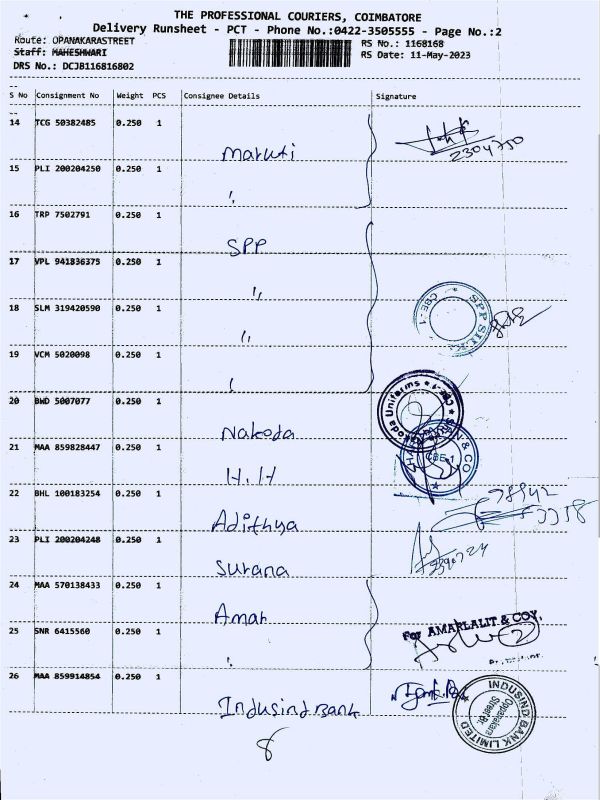 THE PROFESSIONAL COURIERS, COIMBATORE
Delivery Runsheet - PCT - Phone No.:0422-3505555 - Page No.:2
Route: OPANAKARASTREET
RS No.: 1168168
Staff: MAHESHWARI
RS Date: 11-May-2023
DRS No.: DCJB116816802
S No Consignment No Weight PCS Consignee Details Signature
14 TCG 50382485 0.250 1
Maruti
15 PLI 200204250 0.250 1
"
16 TRP 7502791 0.250 1
SPP
17 VPL 941836375 0.250 1
"
18 SLM 319420590 0.250 1
"
19 VCM 5020098 0.250 1
"
20 BWD 5007077 0.250 1
Nakoda
21 MAA 859828447 0.250 1
H.H
22 BHL 100183254 0.250 1
Adithya
23 PLI 200204248 0.250 1
Surana
24 MAA 570138433 0.250 1
Amar
25 SNR 6415560 0.250 1
"
26 MAA 859914854 0.250 1
Indusind Bank
8
SPP SILK
CBE-1
Nakoda Uniforms
CBE-1
& CO
CBE-1
For AMARLALIT & COY.
INDUSIND BANK LIMITED
Oppanakara
Street Br.